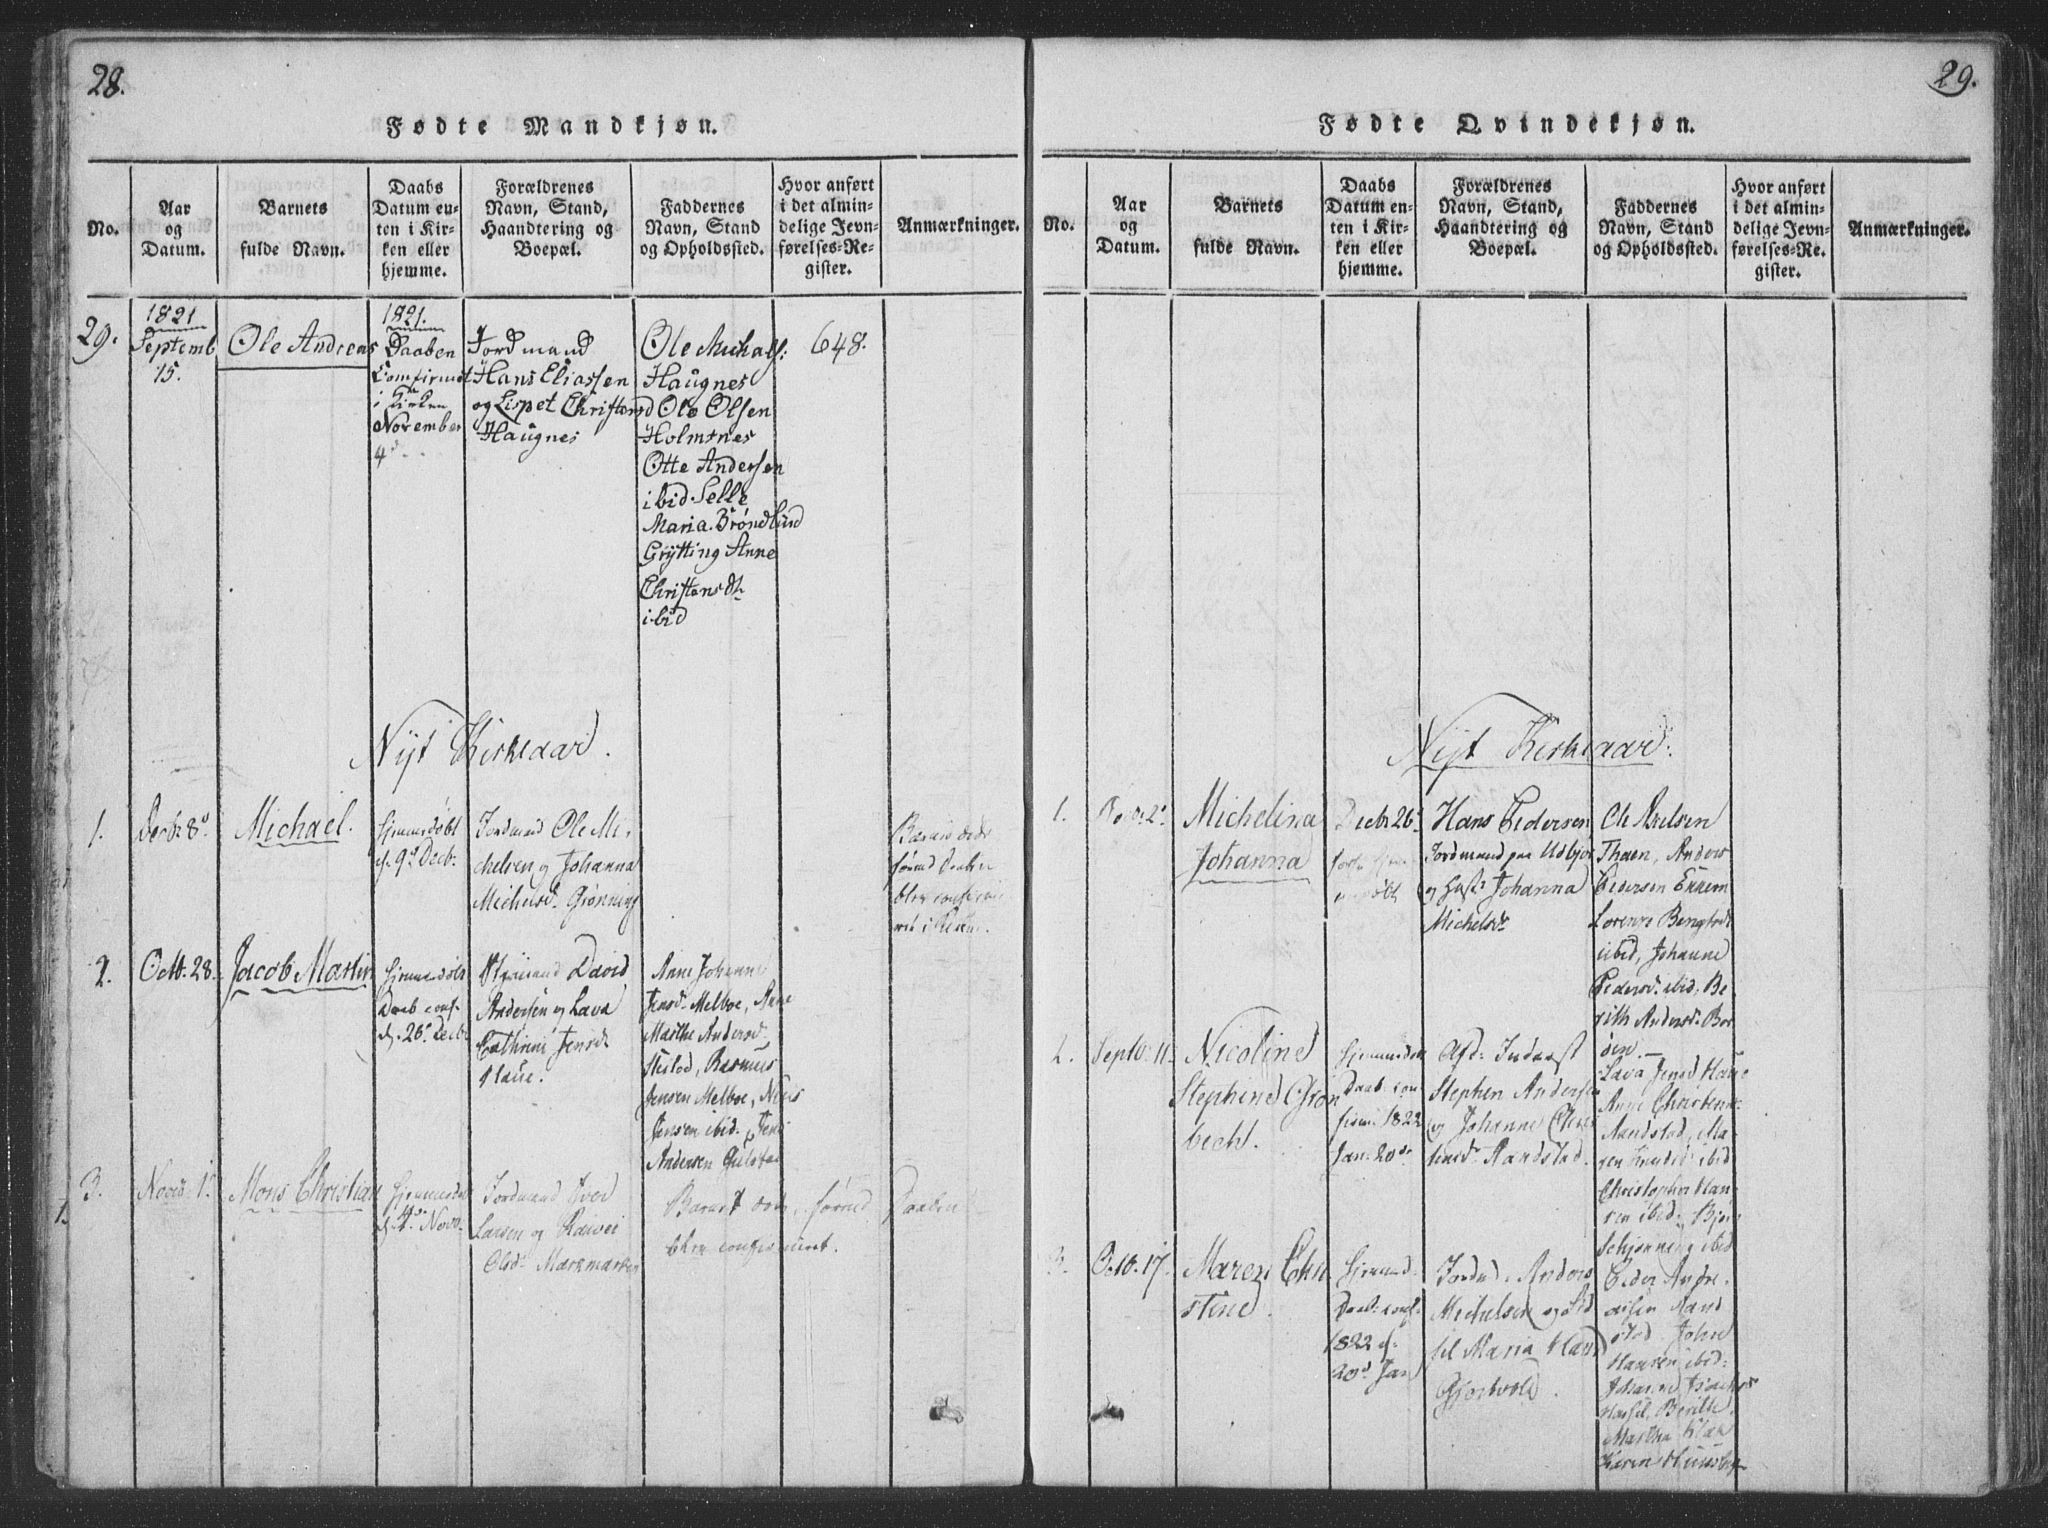 28.
Fødte Mandkjøn.
No.
Aar
og
Datum.
Barnets
fulde Navn.
Daabs
Datum en-
ten i Kir-
ken eller
hjemme.
Forældrenes
Navn, Stand,
Haandtering og
Boepæl.
Faddernes
Navn, Stand
og Opholdssted.
Hvor anført
i det almin-
delige Jevn-
førelses-Re-
gister.
Anmærkninger.
29.
1821
Septemb
15.
Ole Andreas
1821.
Daaben
Comfirmet
i Kirken
November
4d
Jordmand
Hans Eliassen
og Lispet Christensd
Haugnes
Ole Michals:
Haugnes
Ole Olsen
Holmsnes
Otte Andersen
ibid Selle
Maria Brøndlund
Grytting Anne
Christensdt
ibid
648.
Nyt Kirkeaar.
1.
Decbr 8d
Michael.
Hjemmedøbt
d. 9d Decbr.
Jordmand Ole Mi-
chelsen og Johanna
Michelsd. Grønning
Barnet døde
førend Daaben
blev confir-
met i Kirken.
2.
Octb. 28.
Jacob Martin
Hjemmedøbt
Daab conf.
d. 26d Decbr
David
Andersen og Lava
Cathrine Jensdt
Haue.
Anne Johanne
Jensd. Melboe, Anne
Marthe Andersd.
Rasmus
Jensen Melboe, Niels
Jensen ibid. Jens
Andersen
3.
Novb. 1.
Mons Christian
Hjemmedøbt
d. 4de Novb.
Jordmand Iver
Larsen og
Olsd. Markmarken
Barnet døde førend Daaben
blev confirmeret.
29.
Fødte Qvindekjøn.
No.
Aar
og
Datum.
Barnets
fulde Navn.
Daabs
Datum en-
ten i Kir-
ken eller
hjemme.
Forældrenes
Navn, Stand,
Haandtering og
Boepæl.
Faddernes
Navn, Stand
og Opholdssted.
Hvor anført
i det almin-
delige Jevn-
førelses-Re-
gister.
Anmærkninger.
Nyt Kirkeaar.
1.
Michelina
Johanna
Decbr 26d
Hans Pedersen
Jordmand paa Udbjor
og Hust. Johanna
Michelsdr
Ole Axelsen
Thoen, Anders
Pedersen
Lorence Bengtsdt
ibid, Johanne
Pedersd. ibid, Be-
rith Andersd. Bor-
den.
2.
Septb. 11.
Nicoline
Stephine Grøn
bech.
Hjemmedøbt
Daab con-
firm. 1822
Jan. 20de
Afd. Inderst
Stephen Andersen
og Johanne Chris
tensd. Sandstad.
Lava Jensd Haue
Anne Christenn.
Sandstad, Ma-
ren Knudsd ibid
Christopher Han-
sen ibid,
Schjønning ibid
3.
Octb. 17.
Maren Chri
stine.
Hjemmed.
Daab. conf.
1822 d.
20d Jan
Jordmd. Anders
Michelsen og Sid
sel Maria
Peder Andre-
asen Sand
stad. John
Hansen ibid.
Johanne
Berithe
Martha
Karen